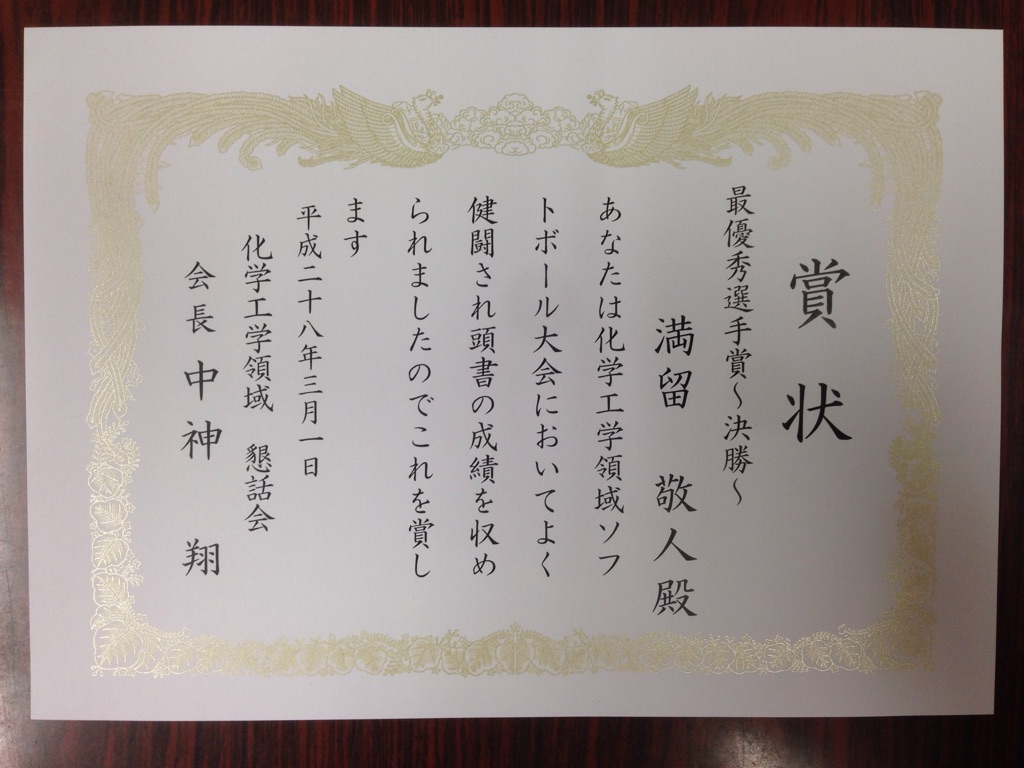 賞状
最優秀選手賞～決勝～
満留 敬人殿
あなたは化学工学領域ソフ
トボール大会においてよく
健闘され頭書の成績を収め
られましたのでこれを賞し
ます
平成二十八年三月一日
化学工学領域 懇話会
会長 中神 翔